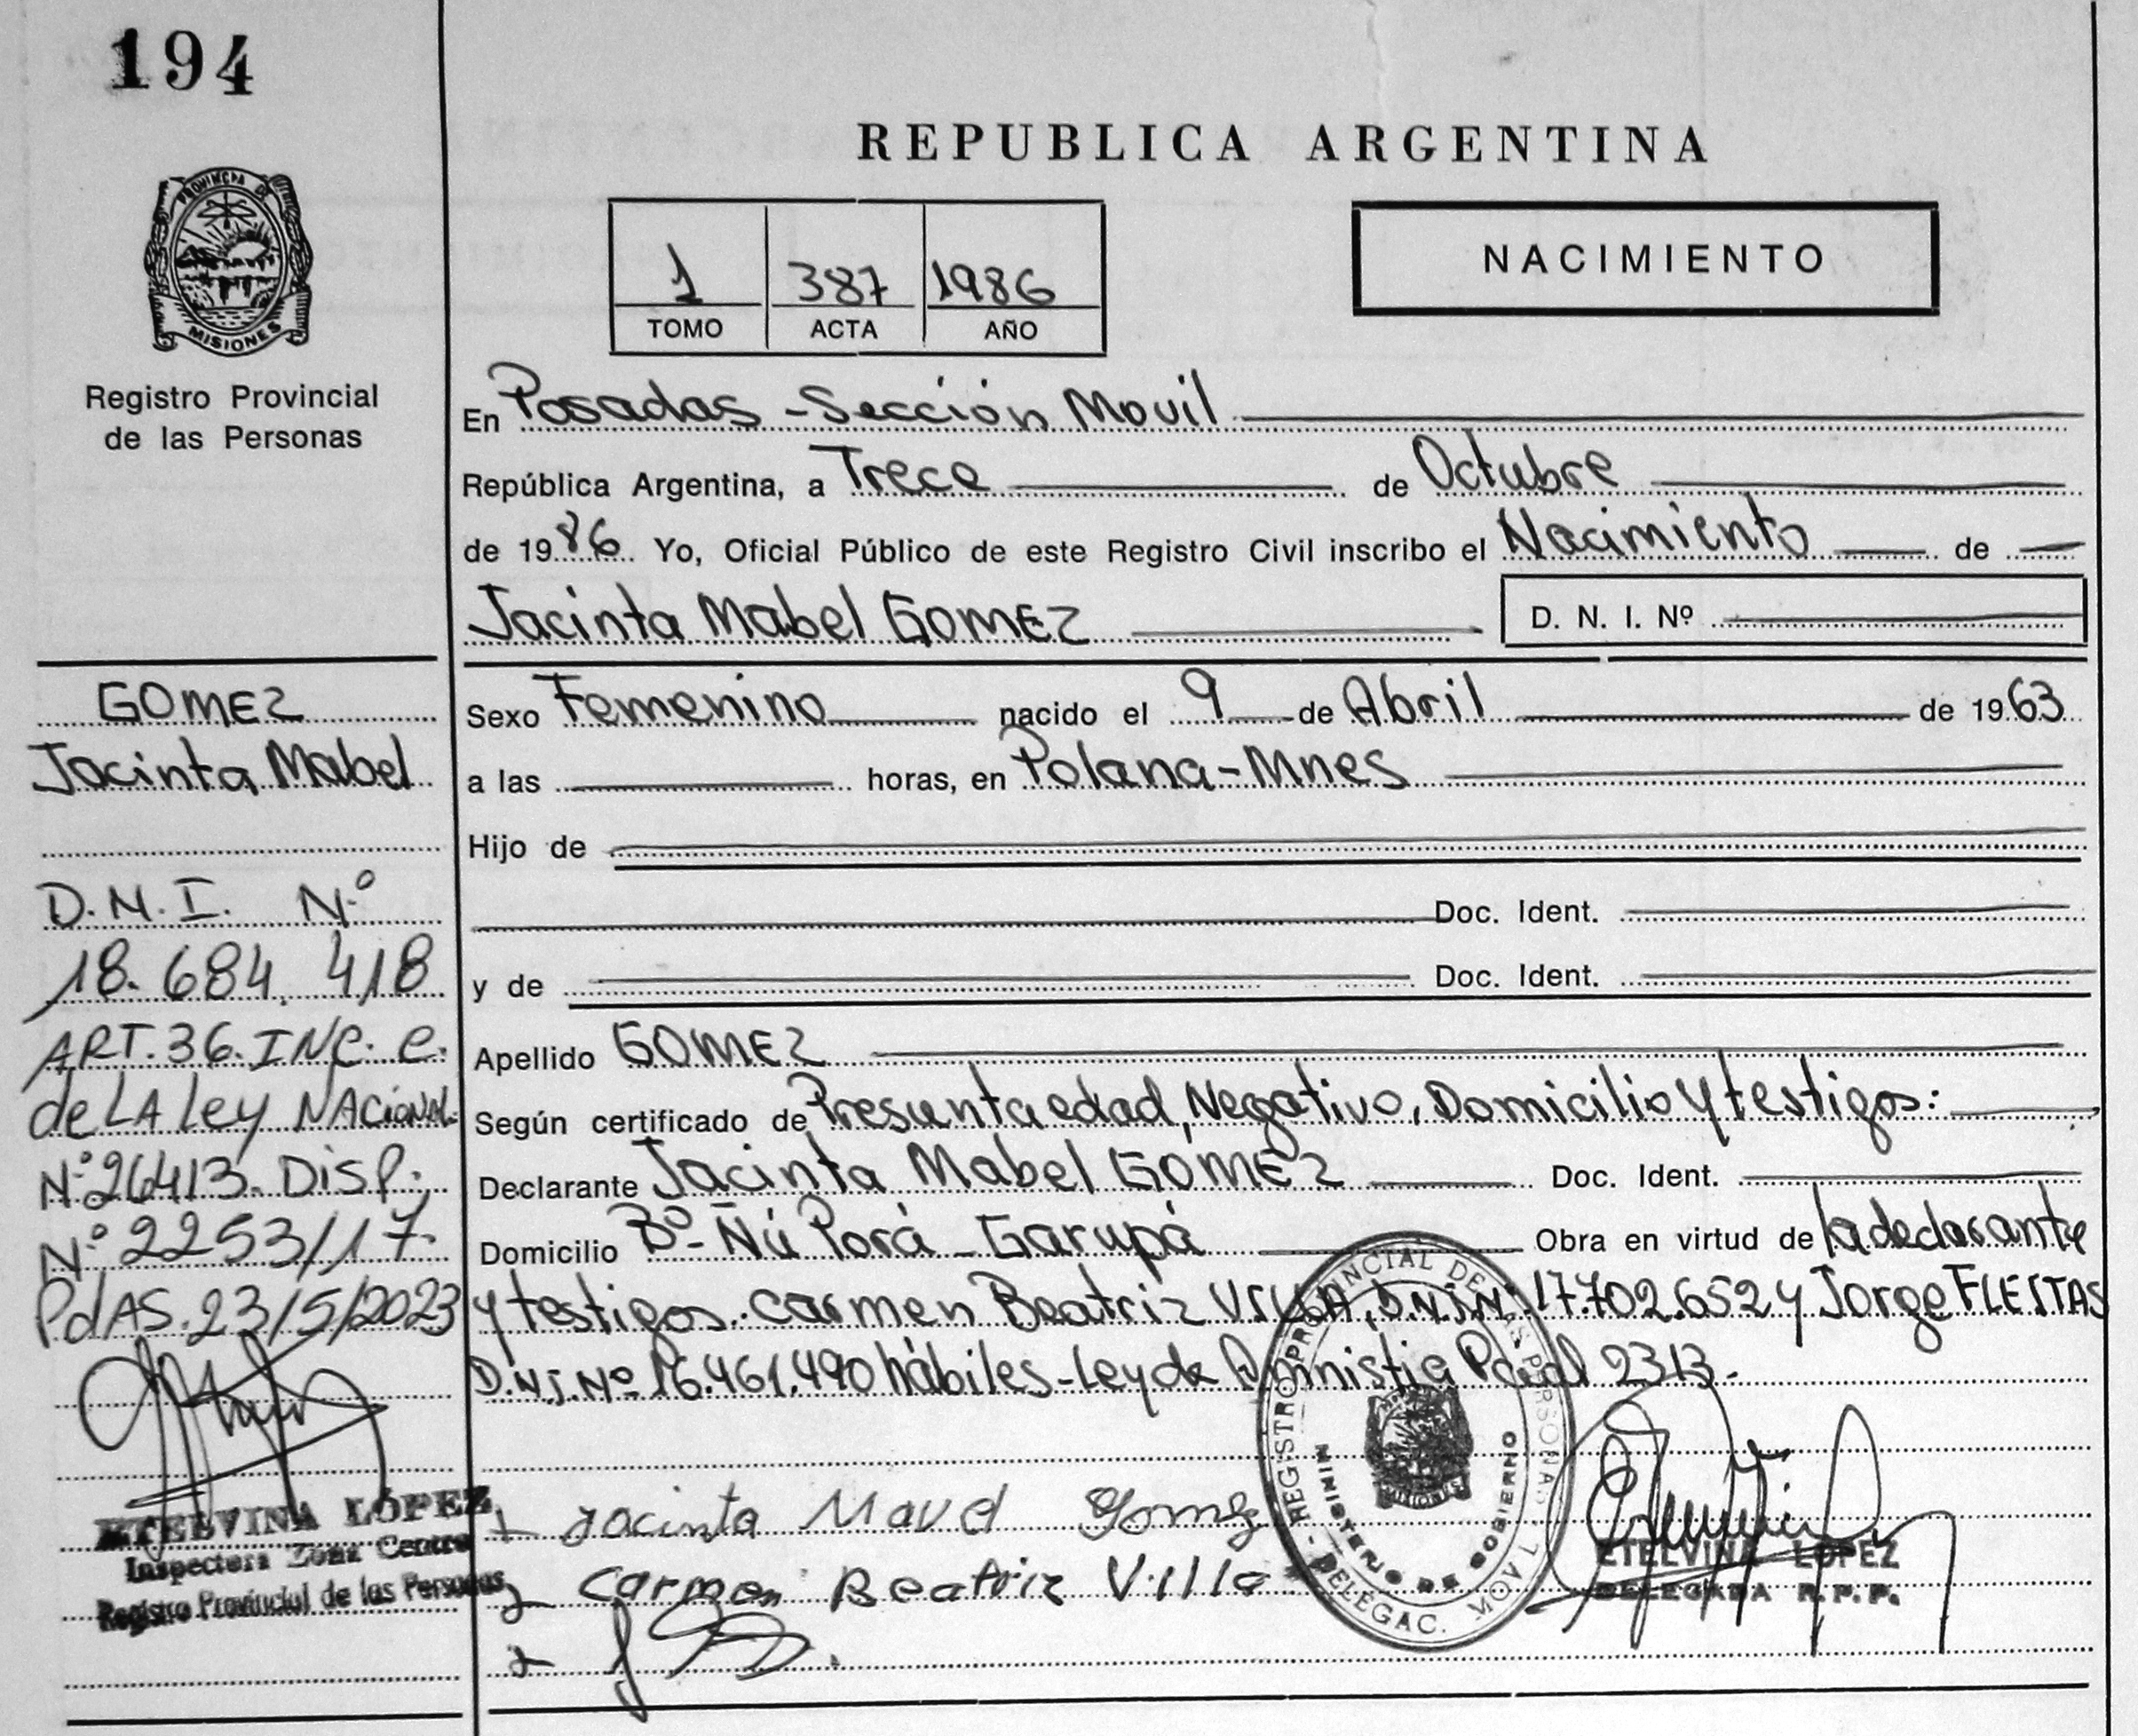 194
REPUBLICA ARGENTINA
PROVINCIA DE
MISIONES
Registro Provincial
de las Personas
1 387 1986
TOMO ACTA AÑO
NACIMIENTO
En Posadas - Sección Movil
República Argentina, a Trece de Octubre
de 1986 Yo, Oficial Público de este Registro Civil inscribo el Nacimiento de
Jacinta Mabel GOMEZ D. N. I. Nº
Sexo Femenino nacido el 9 de Abril de 1963
a las horas, en Polana-Mnes
Hijo de
Doc. Ident.
y de Doc. Ident.
Apellido GOMEZ
Según certificado de Presunta edad, Negativo, Domicilio y testigos:
Declarante Jacinta Mabel GOMEZ Doc. Ident.
Domicilio Bº- Ñú Porá - Garupá Obra en virtud de la declarante
y testigos: Carmen Beatriz VILLA, D.N.I.Nº 17.702.652 y Jorge FLEITAS
D.N.I.Nº 16.461.490 hábiles - Ley de Amnistia Pcial 2313.-
Jacinta Mavel Gomez
Carmen Beatriz Villa
ETELVINA LOPEZ
DELEGADA R.P.P.
REGISTRO PROVINCIAL DE LAS PERSONAS
MINISTERIO DE GOBIERNO
DELEGAC. MOVIL
MISIONES
GOMEZ
Jacinta Mabel
D.N.I. Nº
18.684.418
ART.36.INC.e.
de LA Ley NACIONAL
Nº26413. DISP.
Nº2253/17.
PdAS.23/5/2023
ETELVINA LÓPEZ
Inspectora Zona Centro
Registro Provincial de las Personas